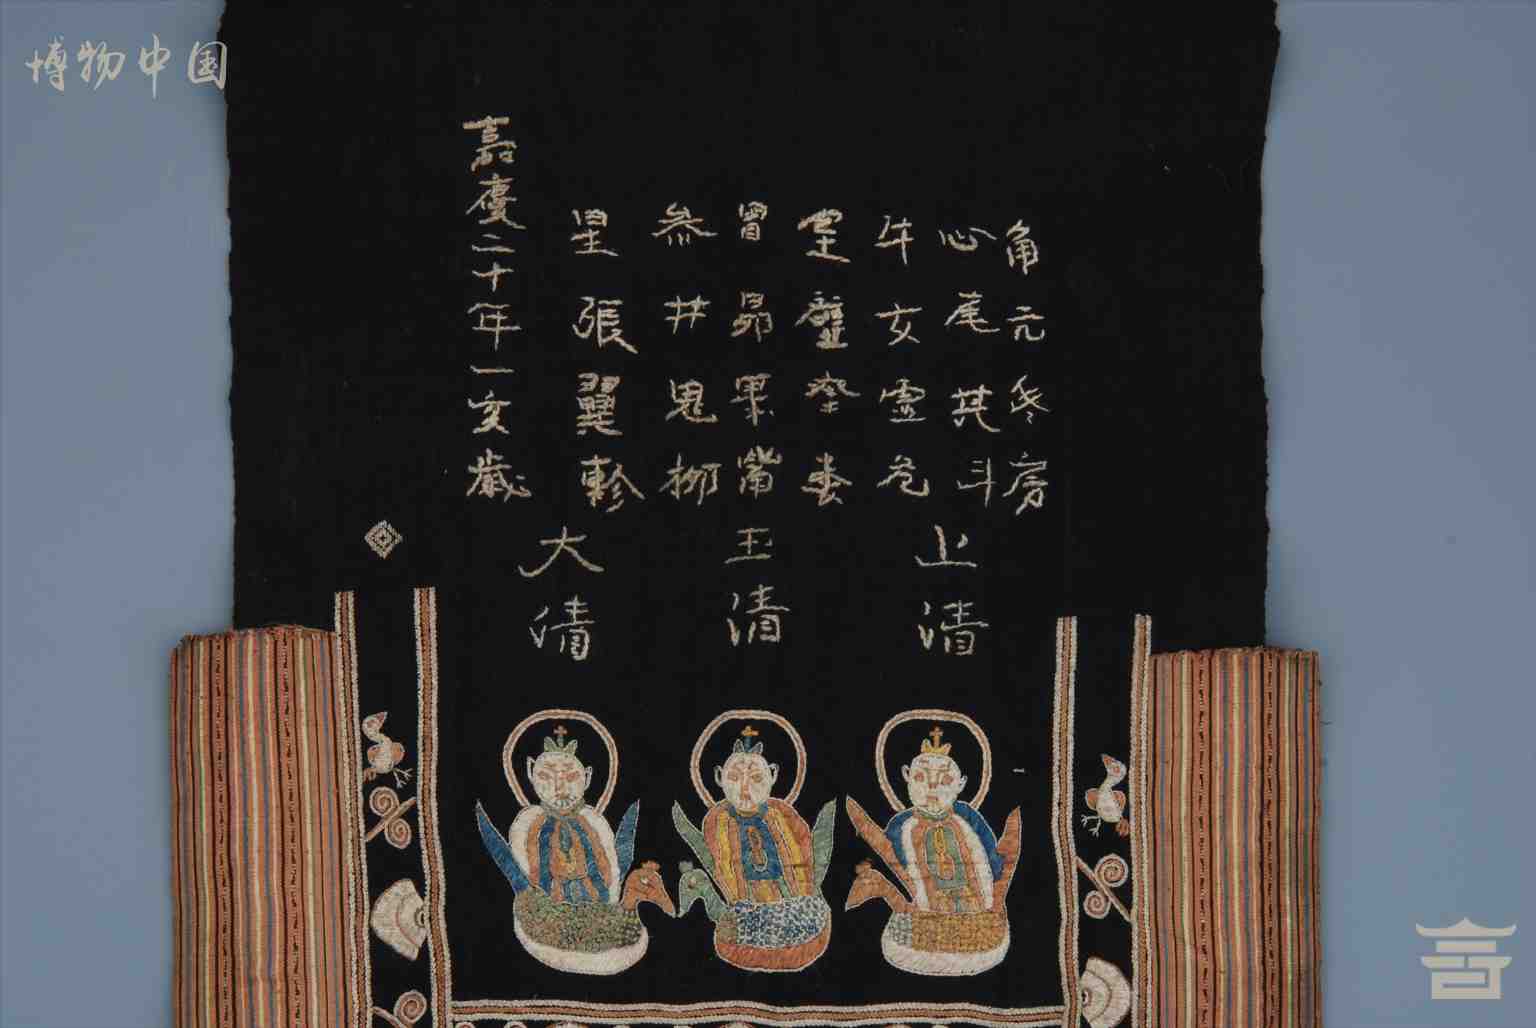 博物中国
角元氐房
心尾其斗
牛女虚危
室壁奎娄
胃昴畢觜
参井鬼柳
星張翼軫
嘉慶二十年一亥歳
上清
玉清
大清